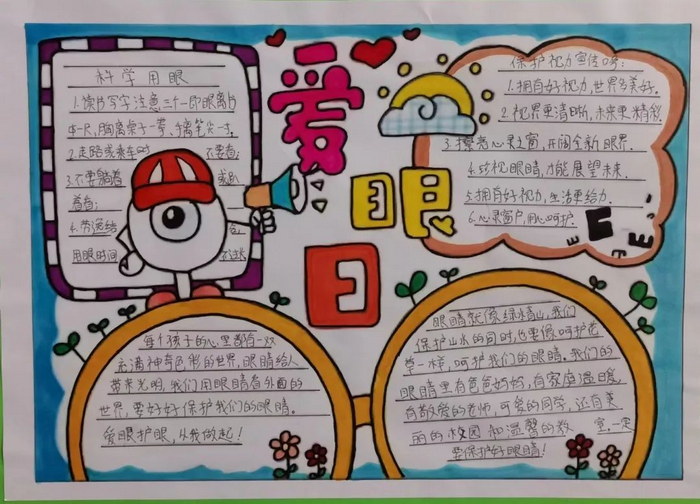 科学用眼
1.读书写字注意三个一即眼离书
本一尺,胸离桌子一拳,手离笔尖一寸。
2.走路或乘车时 不要看;
3.不要躺着 或趴
着看;
4.劳逸结
用眼时间
爱
眼
日
保护视力宣传口号:
1.拥有好视力,世界多美好.
2.视界更清晰,未来更精彩.
3.擦亮心灵之窗,开阔全新眼界.
4.珍视眼睛,才能展望未来.
5.拥有好视力,生活更给力.
6.心灵窗户,用心呵护.
E E E E
每个孩子的心里都有一双
充满神奇色彩的世界,眼睛给人
带来光明,我们用眼睛看外面的
世界,要好好保护我们的眼睛。
爱眼护眼,从我做起!
眼睛就像绿水青山,我们
保护山水的同时,也要像呵护花
草一样,呵护我们的眼睛.我们的
眼睛里有爸爸妈妈,有家庭温暖,
有敬爱的老师,可爱的同学,还有美
丽的校园和温馨的教 室.一定
要保护好眼睛!